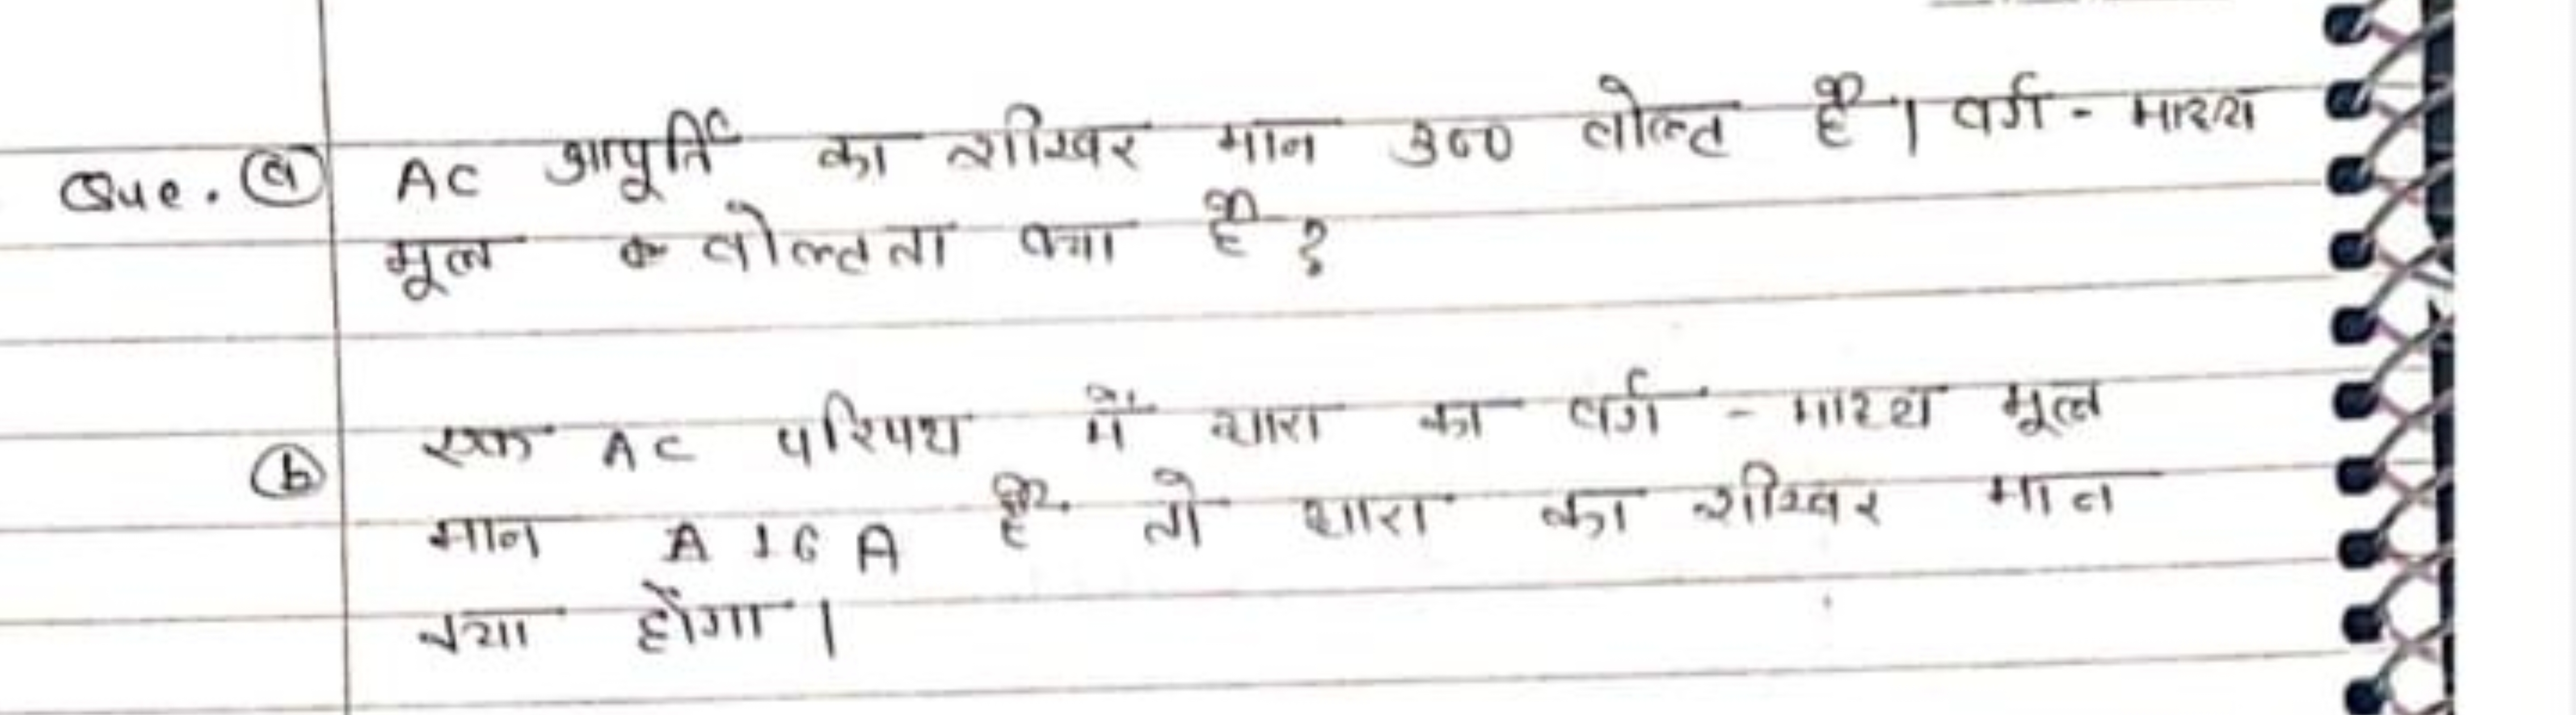 Que. (a) AC आपूर्ति का शीखर मान 300 वोल्ट है। वर्ग - माध्य
मूल वोल्टता क्या है?
(b) एक AC परिपथ में धारा का वर्ग - माध्य मूल
मान A 16 A है तो धारा का शीखर मान
क्या होगा।